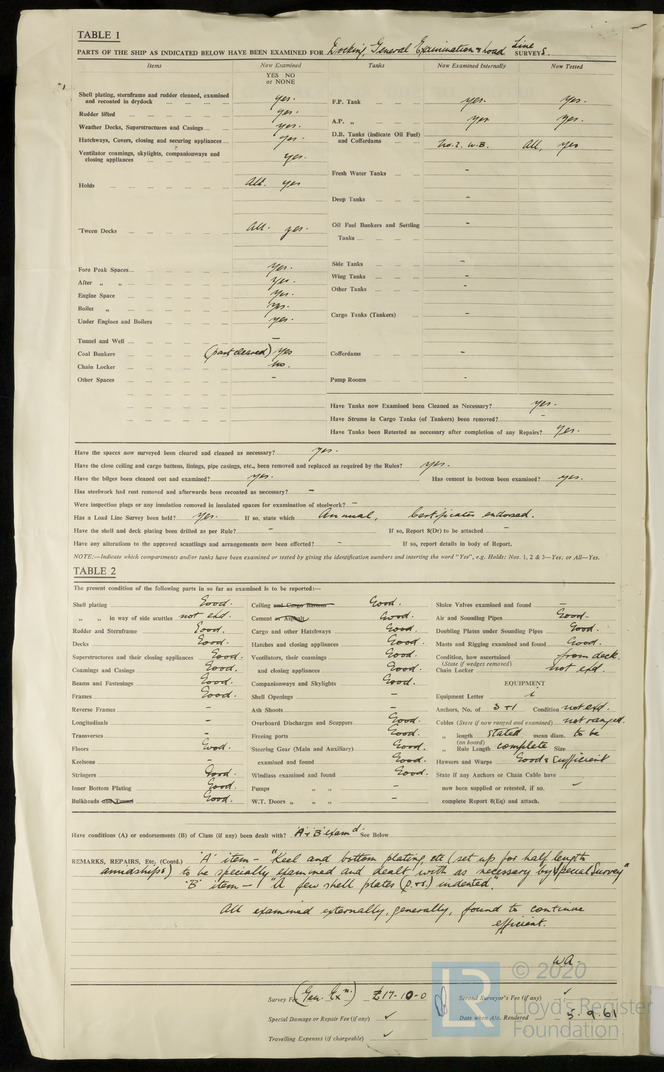 TABLE 1
PARTS OF THE SHIP AS INDICATED BELOW HAVE BEEN EXAMINED FOR Docking, General Examination & Load Line SURVEYS.
Items Now Examined YES NO or NONE
Shell plating, sternframe and rudder cleaned, examined and recoated in drydock yes.
Rudder lifted yes.
Weather Decks, Superstructures and Casings yes.
Hatchways, Covers, closing and securing appliances yes.
Ventilator coamings, skylights, companionways and closing appliances yes.
Holds All. yes
'Tween Decks All. yes.
Fore Peak Spaces yes.
After „ „ yes.
Engine Space yes.
Boiler „ yes.
Under Engines and Boilers yes.
Tunnel and Well –
Coal Bunkers (part cleared) yes
Chain Locker no.
Other Spaces –
Tanks Now Examined Internally Now Tested
F.P. Tank yes. yes.
A.P. „ yes yes.
D.B. Tanks (indicate Oil Fuel) and Cofferdams No. 2. W.B. All. yes
Fresh Water Tanks –
Deep Tanks –
Oil Fuel Bunkers and Settling Tanks –
Side Tanks –
Wing Tanks –
Other Tanks –
Cargo Tanks (Tankers) –
Cofferdams –
Pump Rooms –
Have Tanks now Examined been Cleaned as Necessary? yes.
Have Strums in Cargo Tanks (of Tankers) been removed? –
Have Tanks been Retested as necessary after completion of any Repairs? yes.
Have the spaces now surveyed been cleared and cleaned as necessary? yes.
Have the close ceiling and cargo battens, linings, pipe casings, etc., been removed and replaced as required by the Rules? yes.
Have the bilges been cleaned out and examined? yes. Has cement in bottom been examined? yes.
Has steelwork had rust removed and afterwards been recoated as necessary? –
Were inspection plugs or any insulation removed in insulated spaces for examination of steelwork? –
Has a Load Line Survey been held? yes. If so, state which Annual, Certificates endorsed.
Have the shell and deck plating been drilled as per Rule? – If so, Report 8(Dr) to be attached –
Have any alterations to the approved scantlings and arrangements now been effected? – If so, report details in body of Report.
NOTE:—Indicate which compartments and/or tanks have been examined or tested by giving the identification numbers and inserting the word "Yes", e.g. Holds: Nos. 1, 2 & 3—Yes; or All—Yes.
TABLE 2
The present condition of the following parts in so far as examined is to be reported:—
Shell plating Good.
„ „ in way of side scuttles not exd.
Rudder and Sternframe Good.
Decks Good.
Superstructures and their closing appliances Good.
Coamings and Casings Good.
Beams and Fastenings Good.
Frames Good.
Reverse Frames –
Longitudinals –
Transverses –
Floors Good.
Keelsons –
Stringers Good.
Inner Bottom Plating Good.
Bulkheads and Tunnel Good.
Ceiling and Cargo Battens Good.
Cement or Asphalt Good.
Cargo and other Hatchways Good.
Hatches and closing appliances Good.
Ventilators, their coamings and closing appliances Good.
Companionways and Skylights Good.
Shell Openings –
Ash Shoots –
Overboard Discharges and Scuppers Good.
Freeing ports Good.
Steering Gear (Main and Auxiliary) examined and found Good. Good.
Windlass examined and found Good.
Pumps „ „ –
W.T. Doors „ „ –
Sluice Valves examined and found –
Air and Sounding Pipes Good.
Doubling Plates under Sounding Pipes Good.
Masts and Rigging examined and found Good.
Condition, how ascertained from deck.
(State if wedges removed)
Chain Locker not exd.
EQUIPMENT
Equipment Letter i
Anchors, No. of 3 + 1 Condition not exd.
Cables (State if now ranged and examined) not ranged.
„ length stated mean diam. to be
(on board)
„ Rule Length complete Size
Hawsers and Warps Good & sufficient
State if any Anchors or Chain Cable have now been supplied or retested, if so, complete Report 8(Eq) and attach.
Have conditions (A) or endorsements (B) of Class (if any) been dealt with? 'A' & 'B' examd. See Below
REMARKS, REPAIRS, Etc. (Contd.) 'A' item – "Keel and bottom plating, etc (set up for half length
amidships) to be specially examined and dealt with as necessary by Special Survey"
'B' item – "A few shell plates (p. & s.) indented".
All examined externally, generally, found to continue
efficient.
W.A.
Survey Fee (Gen. Exn.) £17-10-0 Second Surveyor's Fee (if any) ✓
Special Damage or Repair Fee (if any) ✓ Date when A/c. Rendered 5.9.61
Travelling Expenses (if chargeable) ✓
LR © 2020
Lloyd's Register
Foundation